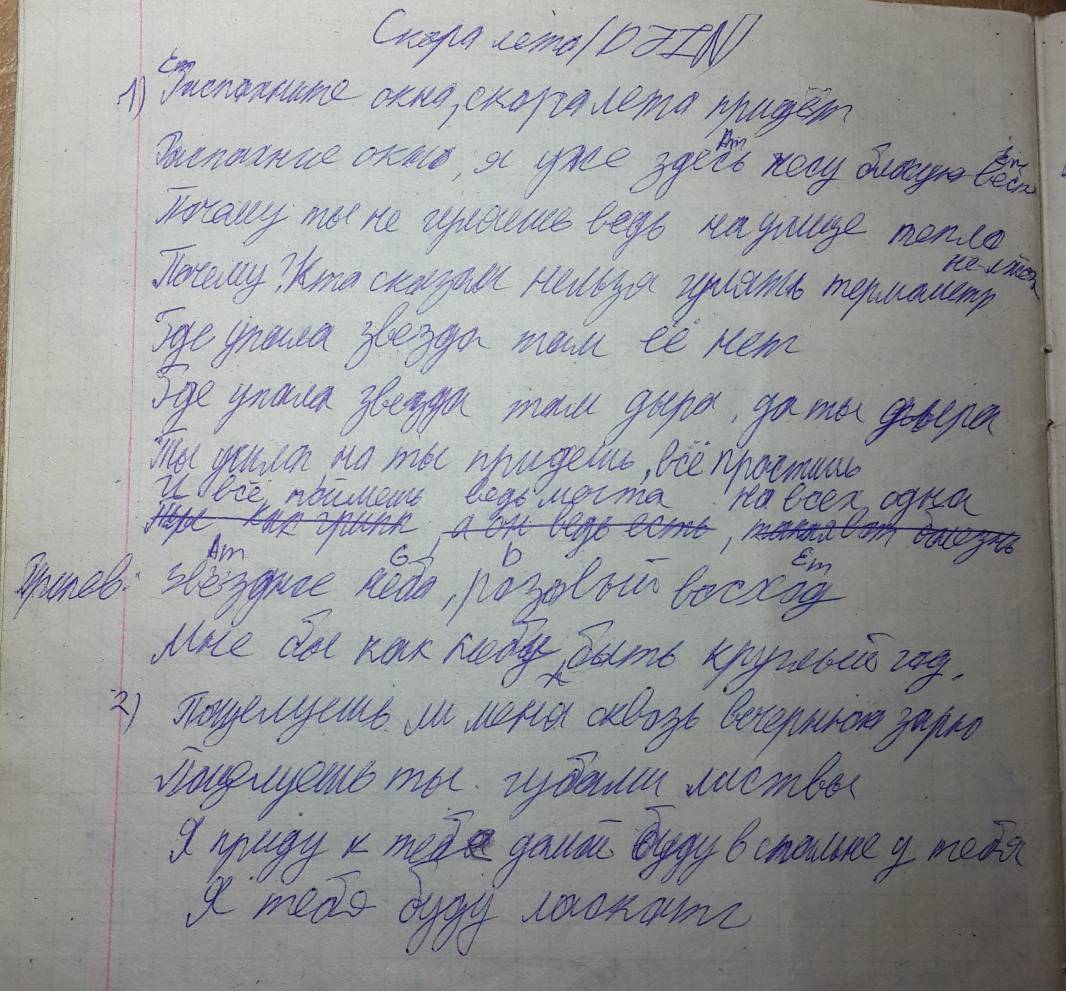 Скора лета/DJIN
Em
1) Распахните окна, скора лета придёт
Am Em
Распахние окно, я уже здесь несу благую весть
Почему ты не гуляешь ведь на улице тепло
Почему? Кта сказал нельзя гулять термаметр не лжёт
Где упала звезда там её нет
Где упала звезда там дыра, да ты дъера
Ты ушла на ты придешь, всё простишь
И всё поймешь ведь мечта на всех одна
а он ведь есть, такая вот болезнь
Am G D Em
Припев: Звёздное небо, розавый восход
Мне бы как небу, быть круглый год,
2) Поцелуешь ли меня сквозь вечернюю зарю
Поцелуешь ты губами листвы
Я приду к тебе дамой буду в спальне у тебя
Я тебя буду ласкать